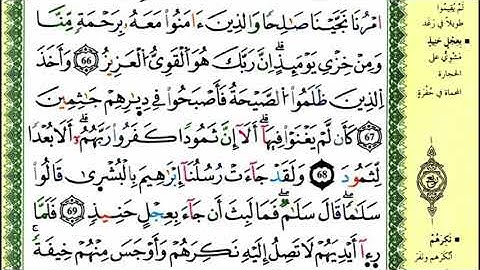 أَمْرُنَا نَجَّيْنَا صَٰلِحًا وَالَّذِينَ ءَامَنُوا مَعَهُۥ بِرَحْمَةٍ مِّنَّا
وَمِنْ خِزْيِ يَوْمِئِذٍۗ إِنَّ رَبَّكَ هُوَ الْقَوِيُّ الْعَزِيزُ ﴿66﴾ وَأَخَذَ
الَّذِينَ ظَلَمُوا الصَّيْحَةُ فَأَصْبَحُوا فِي دِيَٰرِهِمْ جَٰثِمِينَ
﴿67﴾ كَأَن لَّمْ يَغْنَوْا فِيهَاۗ أَلَا إِنَّ ثَمُودَا كَفَرُوا رَبَّهُمْۗ أَلَا بُعْدًا
لِّثَمُودَ ﴿68﴾ وَلَقَدْ جَاءَتْ رُسُلُنَا إِبْرَٰهِيمَ بِالْبُشْرَىٰ قَالُوا
سَلَٰمًا قَالَ سَلَٰمٌۖ فَمَا لَبِثَ أَن جَاءَ بِعِجْلٍ حَنِيذٍ ﴿69﴾ فَلَمَّا
رَءَا أَيْدِيَهُمْ لَا تَصِلُ إِلَيْهِ نَكِرَهُمْ وَأَوْجَسَ مِنْهُمْ خِيفَةً
لَمْ يُقِيمُوا
طَوِيلًا فِي رَغَدٍ
بِعِجْلٍ حَنِيذٍ
مَشْوِيٍّ عَلَى
الحِجارة
المُحْمَاة في حُفْرَةٍ
رُبْع
نَكِرَهُمْ
أَنْكَرَهُم ونَفَرَ